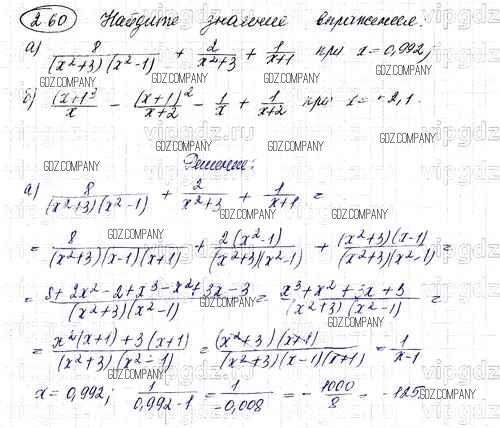 2.60 Найдите значение выражения:
а) 8/((x²+3)(x²-1)) + 2/(x²+3) + 1/(x+1) при x=0,992;
б) (x+1)³/x - (x+1)²/(x+2) - 1/x + 1/(x+2) при x=-2,1.
Решение:
а) 8/((x²+3)(x²-1)) + 2/(x²+3) + 1/(x+1) =
= 8/((x²+3)(x-1)(x+1)) + 2(x²-1)/((x²+3)(x²-1)) + (x²+3)(x-1)/((x²+3)(x²-1)) =
= (8+2x²-2+x³-x²+3x-3)/((x²+3)(x²-1)) = (x³+x²+3x+3)/((x²+3)(x²-1)) =
= (x²(x+1)+3(x+1))/((x²+3)(x²-1)) = (x²+3)(x+1)/((x²+3)(x-1)(x+1)) = 1/(x-1)
x=0,992; 1/(0,992-1) = 1/(-0,008) = -1000/8 = -125
GDZ.COMPANY
vipgdz.ru